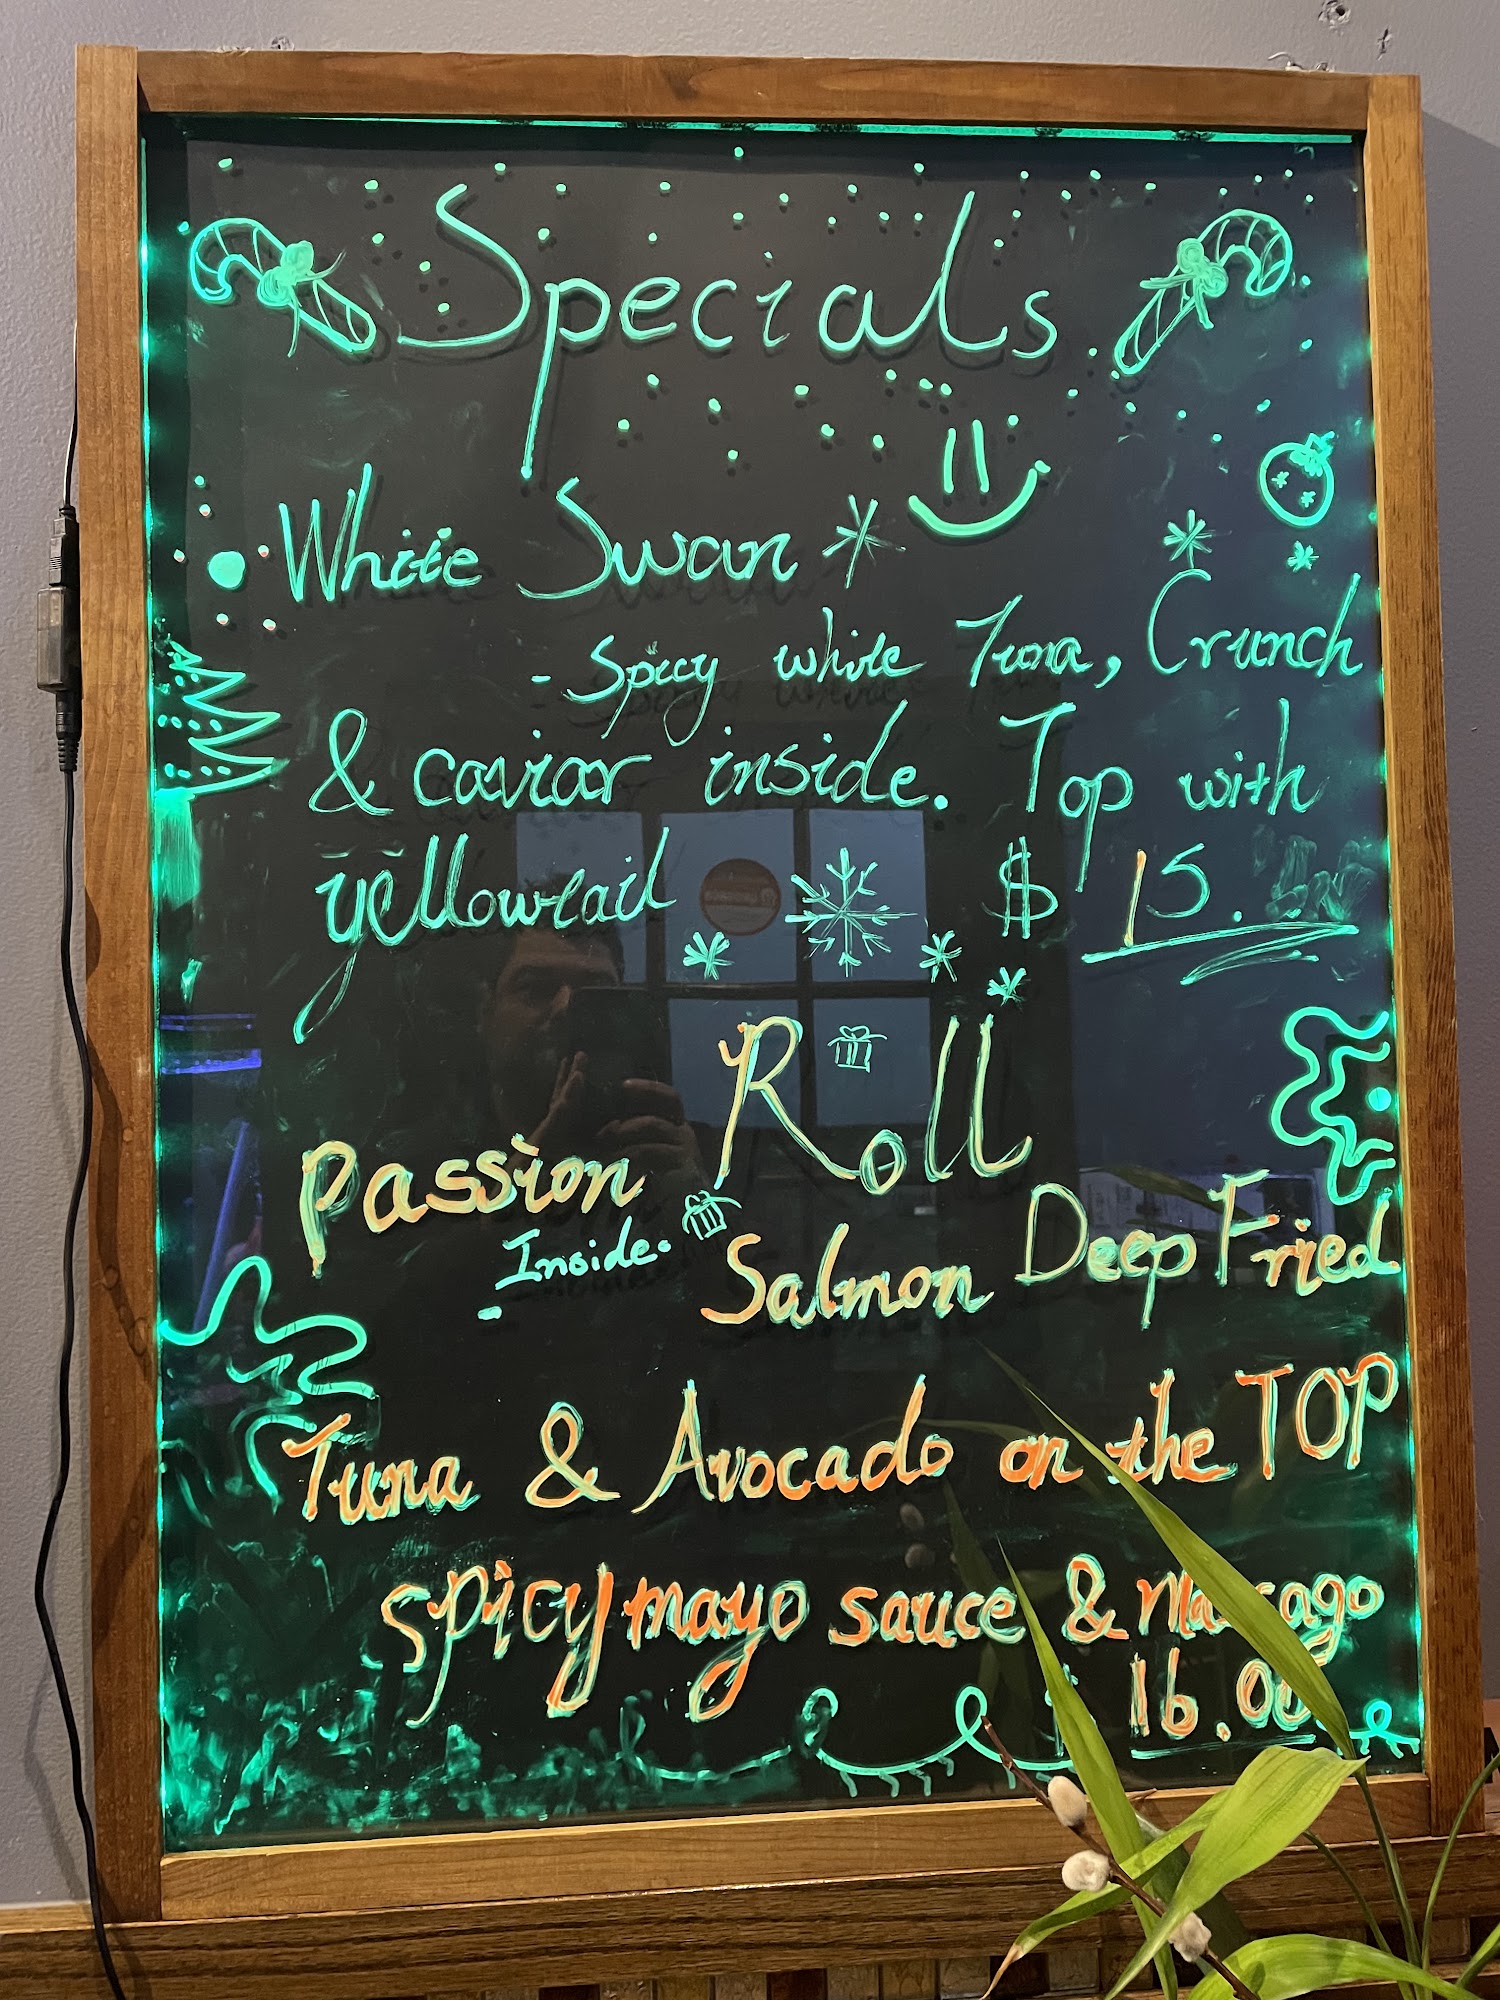 Specials
White Swan
- Spicy white Tuna, Crunch
& caviar inside. Top with
yellowtail $ 15.
Passion Roll
Inside. Salmon Deep Fried
Tuna & Avocado on the TOP
spicy mayo sauce & Masago
16.00